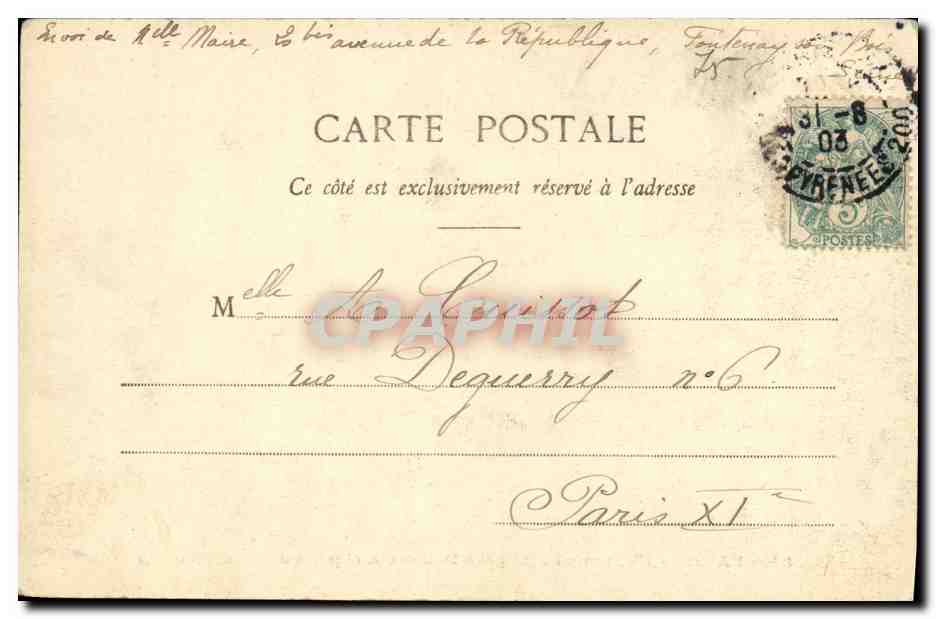 Envoi de Mlle Maire, 20 bis avenue de la République, Fontenay sous Bois
75. Seine
CARTE POSTALE
Ce côté est exclusivement réservé à l'adresse
31 -8
03
PYRENEES
200
5
POSTES
Melle A.
CPAPHIL
rue Deguerry n° 6
Paris XIe